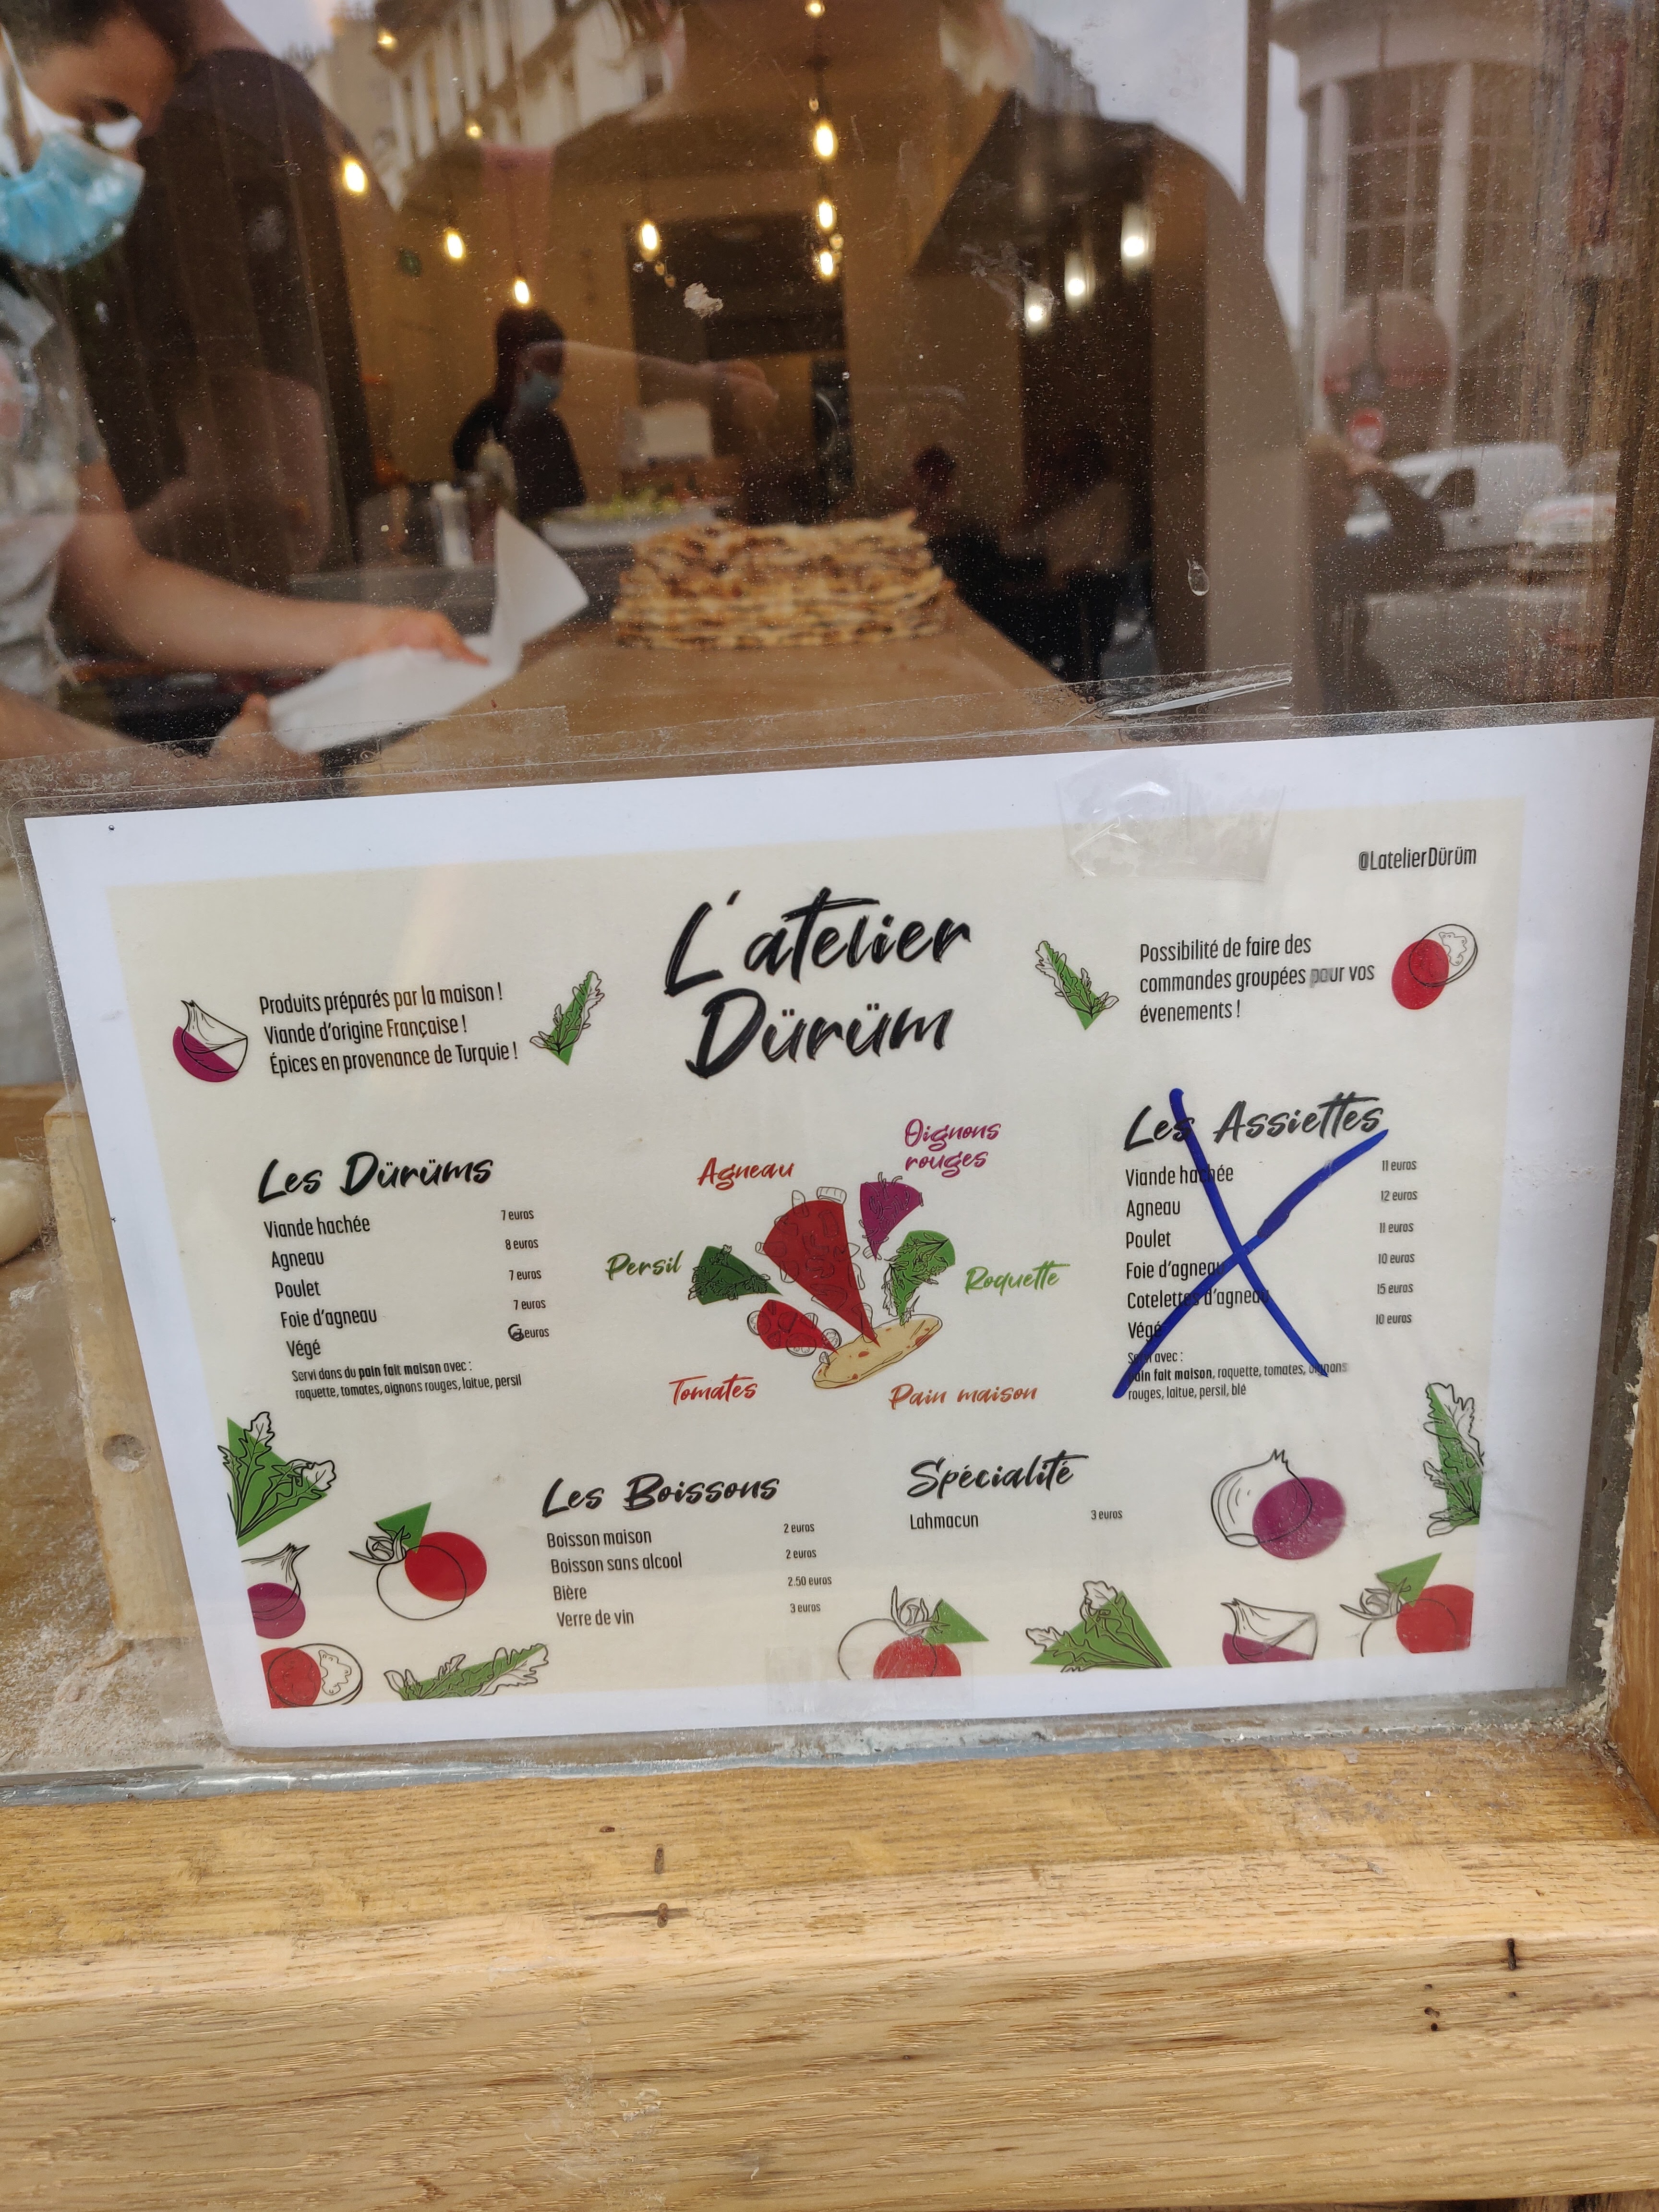 @LatelierDürüm
L'atelier
Dürüm
Produits préparés par la maison !
Viande d'origine Française !
Épices en provenance de Turquie !
Possibilité de faire des
commandes groupées pour vos
évenements !
Les Dürüms
Viande hachée 7 euros
Agneau 8 euros
Poulet 7 euros
Foie d'agneau 7 euros
Végé 6 euros
Servi dans du pain fait maison avec :
roquette, tomates, oignons rouges, laitue, persil
Agneau
Oignons
rouges
Persil
Roquette
Tomates
Pain maison
Les Assiettes
Viande hachée 11 euros
Agneau 12 euros
Poulet 11 euros
Foie d'agneau 10 euros
Cotelettes d'agneau 15 euros
Végé 10 euros
Servi avec :
pain fait maison, roquette, tomates, oignons
rouges, laitue, persil, blé
Les Boissons
Boisson maison 2 euros
Boisson sans alcool 2 euros
Bière 2.50 euros
Verre de vin 3 euros
Spécialité
Lahmacun 3 euros